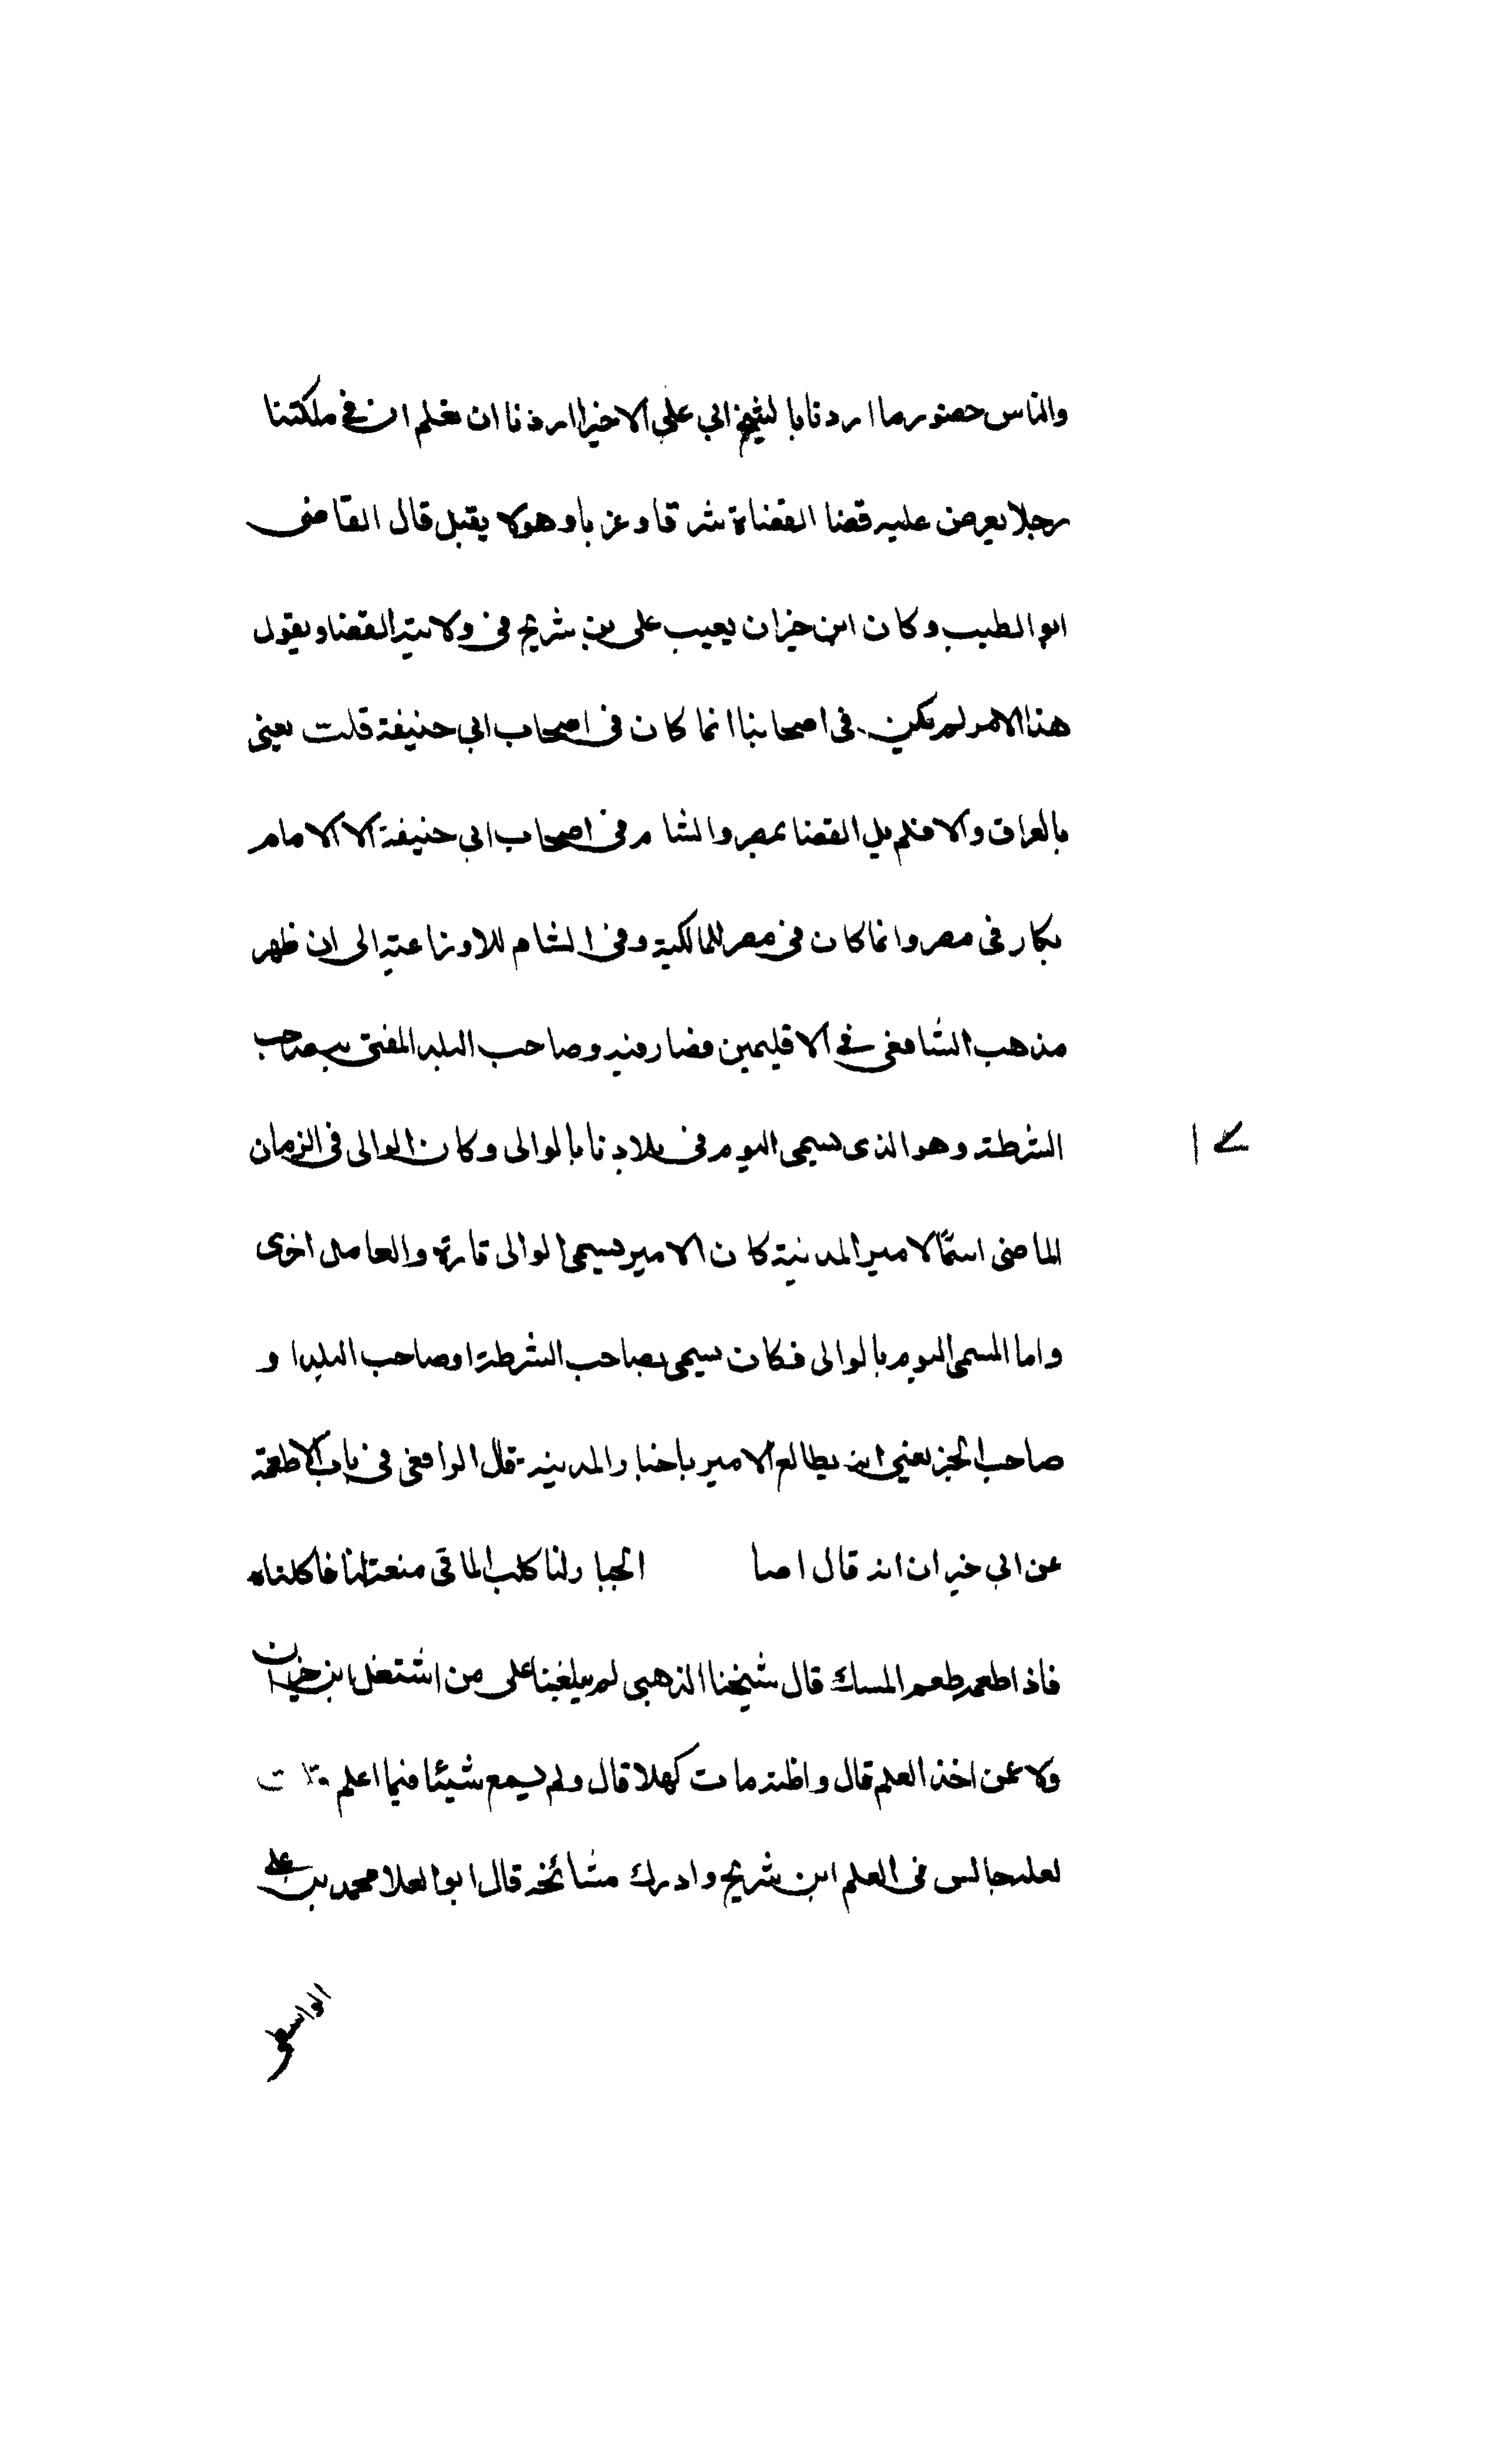 والناس حضور ما اردنا بالشيخ ابي علي الا خيرا اردنا ان نعلم ان في ملكتنا
رجلا يعرض عليه قضا القضاة شرقا وغربا وهو لا يقبل قال القاضى
ابو الطيب وكان ابن خيران يعيب على بن شريح في ولايته القضا ويقول
هذا الامر لم يكن في اصحابنا انما كان في اصحاب ابي حنيفة قلت يعني
بالعراق والا فلم يل القضا بمصر والشام في اصحاب ابي حنيفة الا الامام
بكار في مصر وانما كان في مصر للمالكية وفي الشام للاوزاعية الى ان ظهر
مذهب الشافعي في الاقليمين فصار فيه وصاحب البلد المفتى بصاحب
الشرطة وهو الذى يسمى اليوم في بلادنا بالوالى وكان الوالى في الزمان
الماضى اسما لامير المدينة كان الامير يسمى الوالى تارة والعامل اخرى
واما المسمى اليوم بالوالى فكان يسمى بصاحب الشرطة او صاحب البلد او
صاحب الخبز يعني انه يطالع الامير باخبار المدينة قال الرافعي في باب الاطعمة
عن ابي خيران انه قال اصا الجبار لنا كلب الما في منعتلنا فاكلناه
فاذا طعمه طعم المسك قال شيخنا الذهبي لم يبلغنا على من اشتغل ابن خيران
ولا عمن اخذ العلم قال واظنه مات كهلا قال ولم يسمع شيئا فيما اعلم
لعله جالس في العلم ابن شريح وادرك مشائخه قال ابو العلا محمد بن علي
الواسطي